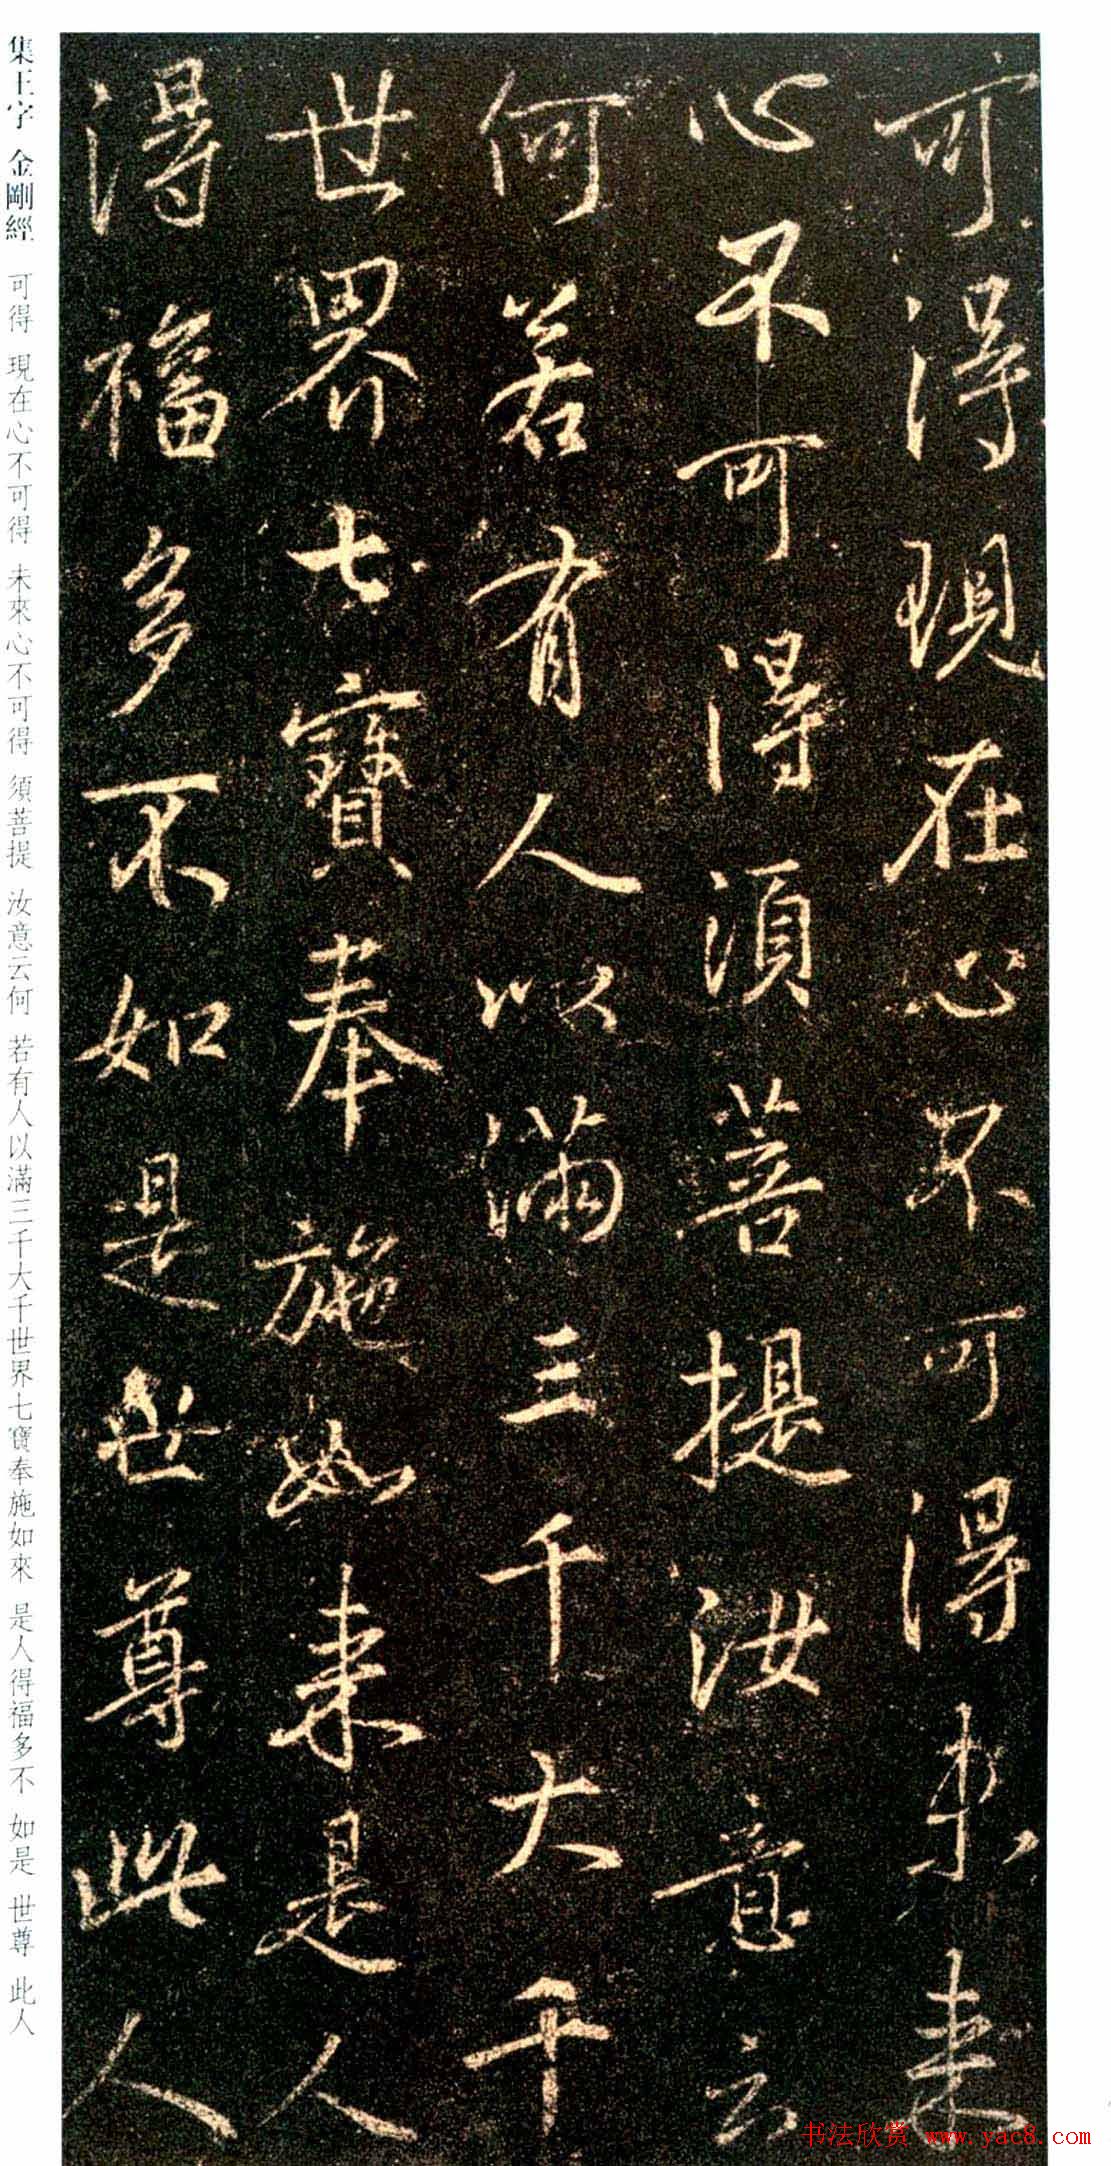 可得現在心不可得未来
心不可得須菩提汝意云
何若有人以滿三千大千
世界七寶奉施如来是人
得福多不如是世尊此人
集王字 金剛經 可得 現在心不可得 未來心不可得 須菩提 汝意云何 若有人以滿三千大千世界七寶奉施如來 是人得福多不 如是 世尊 此人
书法欣赏 www.yac8.com